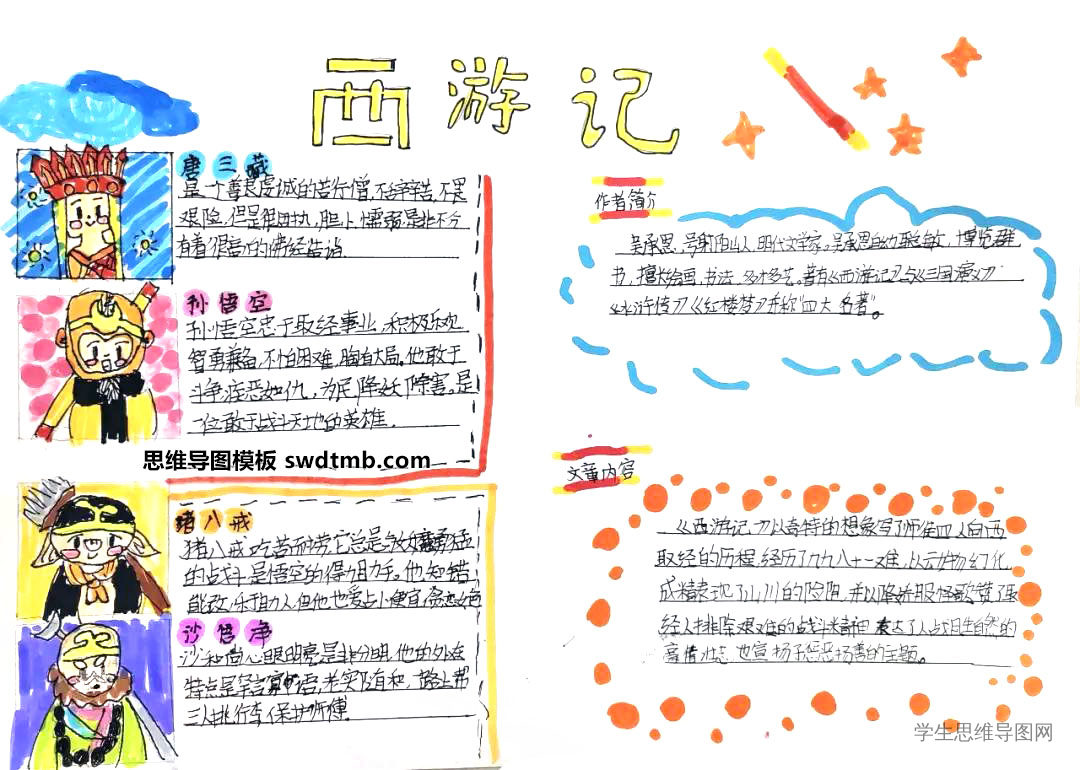 西游记
唐三藏
是一个善良虔诚的苦行僧,不辞辛苦,不畏
艰险,但是很固执,胆小,懦弱是非不分
有着很高的佛经造诣.
孙悟空
孙悟空忠于取经事业,积极乐观
智勇兼备,不怕困难,胸有大局。他敢于
斗争,疾恶如仇,为民降妖除害。是
一位敢于战斗天地的英雄.
思维导图模板 swdtmb.com
猪八戒
猪八戒吃苦耐劳,它总是以勇猛
的战斗是悟空的得力助手。他知错
能改,乐于助人但他也爱占小便宜,贪恋女色
沙悟净
沙和尚心眼明亮是非分明,他的外在
特点是寡言语,老实随和,一路上帮
三人挑行李保护师傅.
作者简介
吴承恩,号射阳山人,明代文学家。吴承恩自幼聪敏,博览群
书,擅长绘画,书法,多才多艺,著有《西游记》与《三国演义》
《水浒传》《红楼梦》并称"四大名著"。
文章内容
《西游记》以奇特的想象写了师徒四人向西
取经的历程,经历了九九八十一难,从云物幻化
成精表现了山川的险阻,并以降妖服怪歌赞了取
经人排除艰难的战斗精神 表达了人战胜自然的
豪情壮志 也宣扬了惩恶扬善的主题。
学生思维导图网